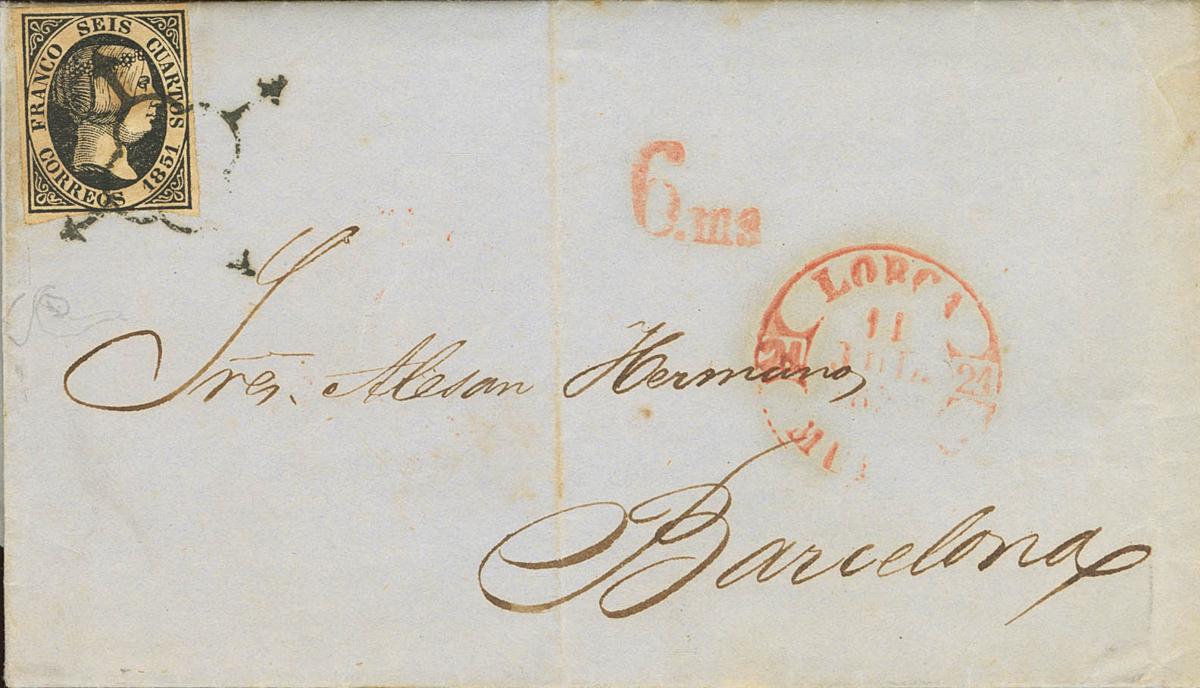 FRANCO SEIS CUARTOS
CORREOS 1851
6.ms
LORCA
11
JUL
24 24
Sres. Alesan Hermanos
Barcelona